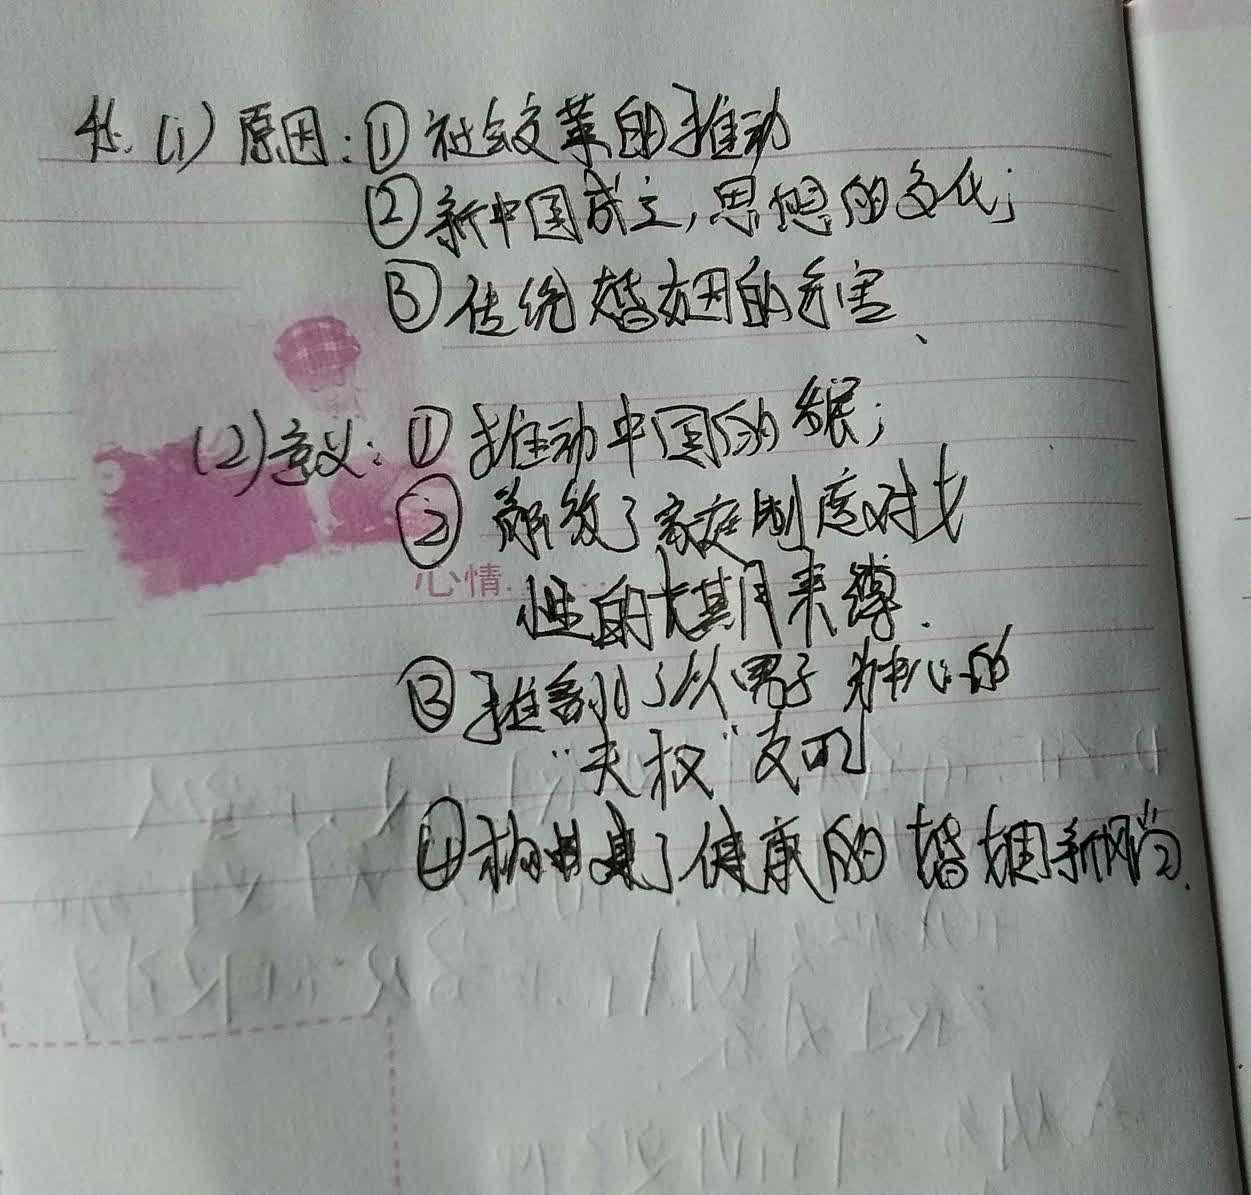 45. (1) 原因: ① 社会变革的推动
② 新中国成立, 思想的变化;
③ 传统婚姻的危害、
(2) 意义: ① 推动中国的发展;
② 解放了家庭制度对女
性的长期束缚.
心情
③ 推翻了以男子为中心的
“夫权”支配
④ 构建了健康的婚姻新风尚.